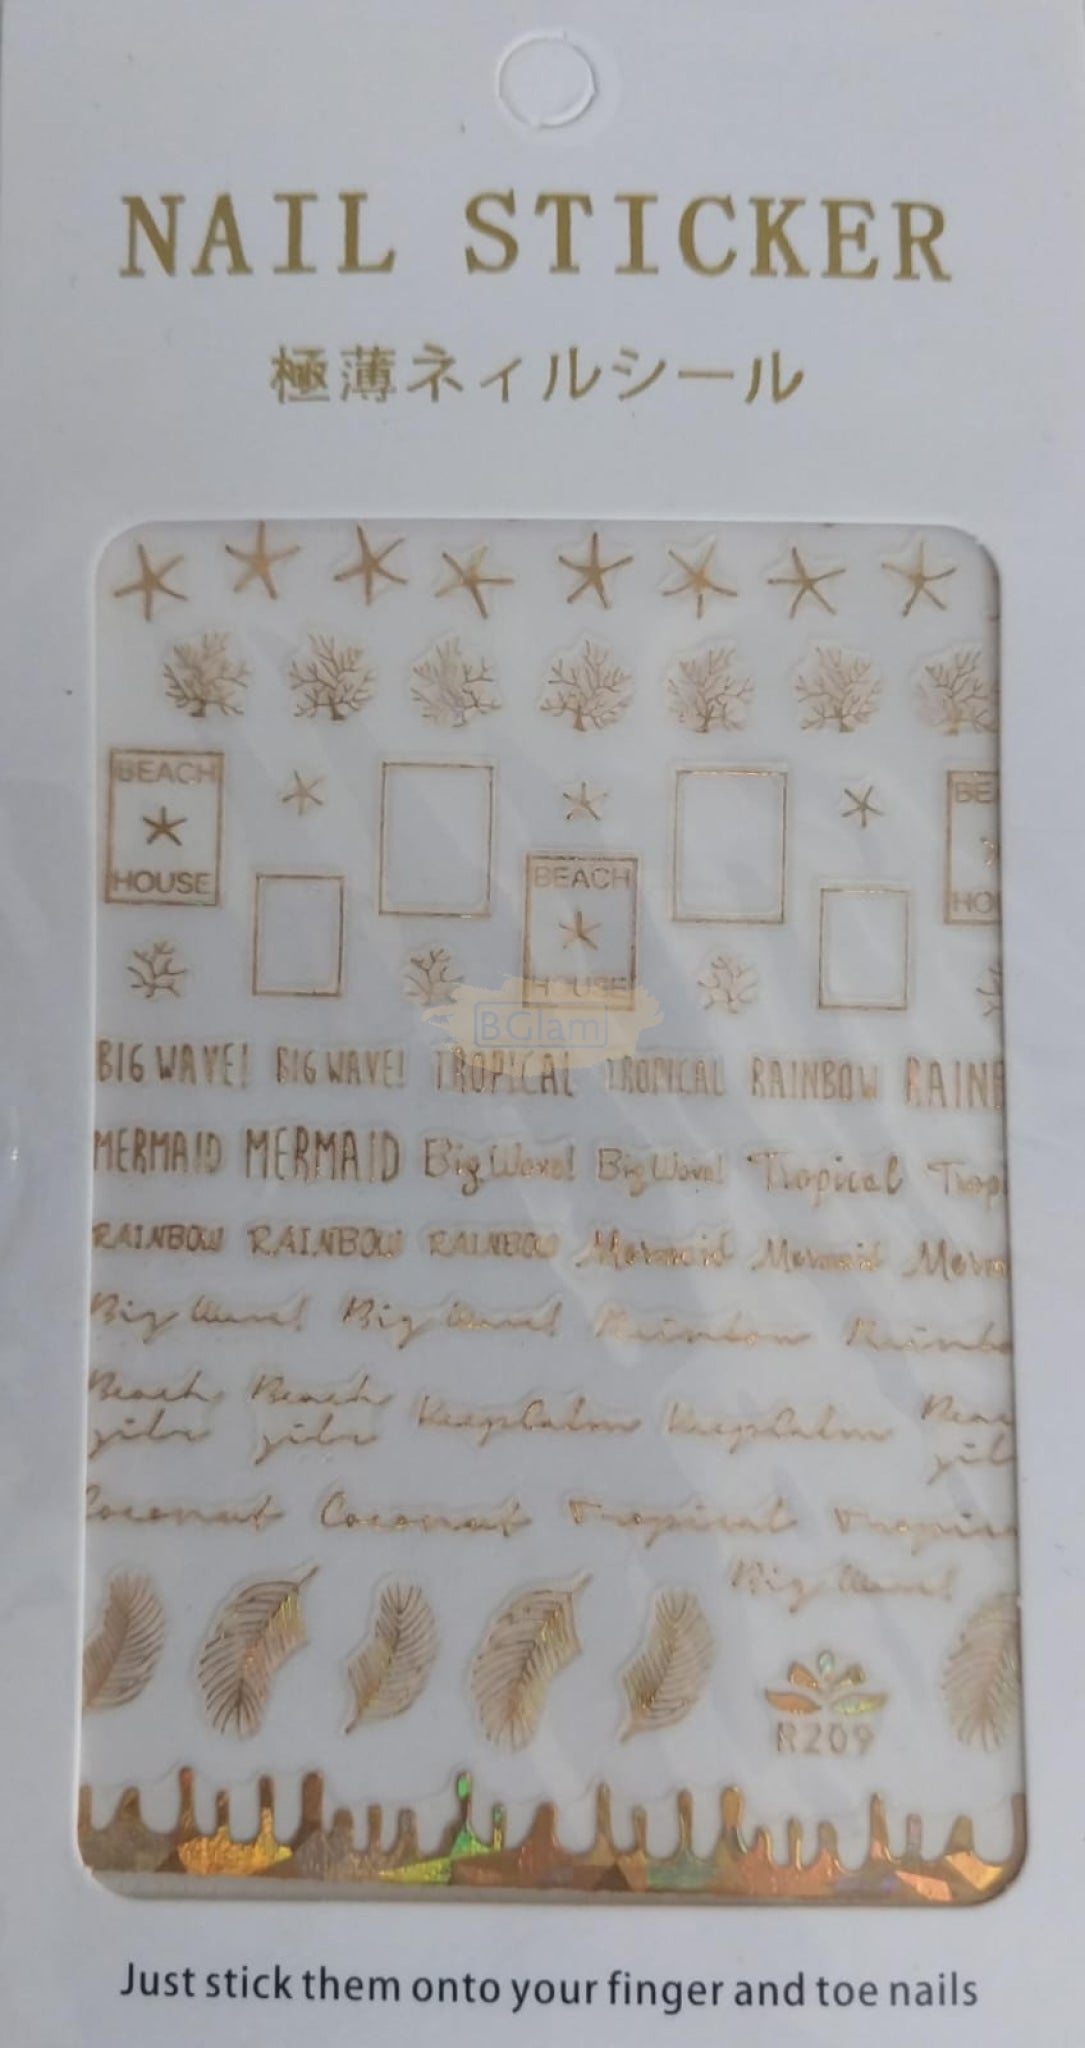 NAIL STICKER
極薄ネィルシール
BEACH
HOUSE
BEACH
HOUSE
BE
HO
BGlam
BIG WAVE! BIG WAVE! TROPICAL TROPICAL RAINBOW RAINB
MERMAID MERMAID Big Wave! Big Wave! Tropical Trop
RAINBOW RAINBOW RAINBOW Mermaid Mermaid Merm
Big Wave! Big Wave! Rainbow Rainbo
Beach Beach KeepCalm KeepCalm Beac
girls girls
Coconut Coconut Tropical Tropic
Big Wave!
R209
Just stick them onto your finger and toe nails